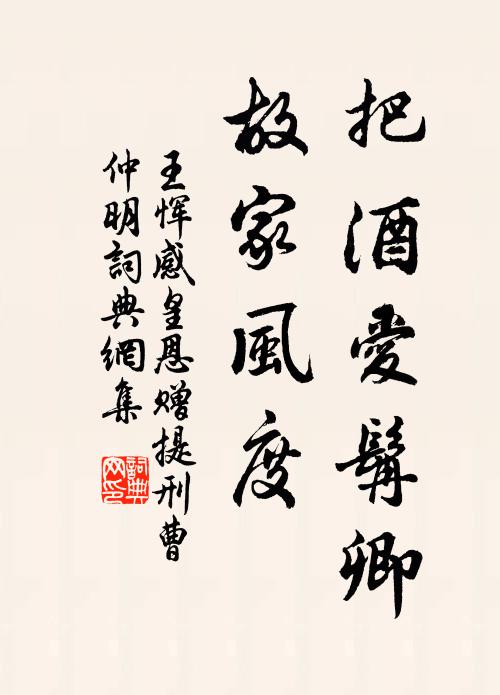 把酒愛髯卿
故家風度
王惲感皇恩贈提刑曹
仲明詞典網集
詞典網印